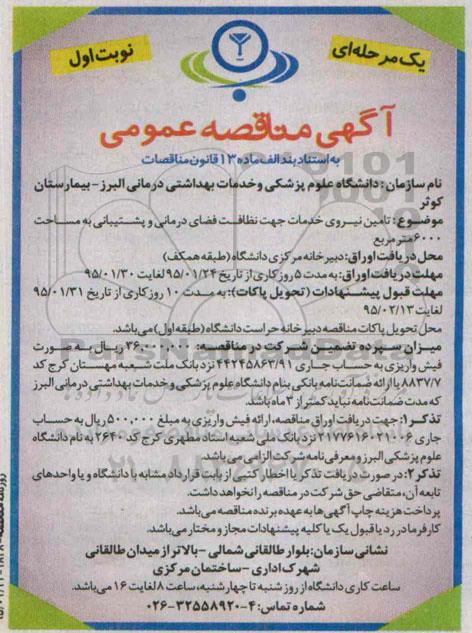 یک مرحله‌ای
نوبت اول
آگهی مناقصه عمومی
به استناد بند الف ماده ۱۳ قانون مناقصات
نام سازمان: دانشگاه علوم پزشکی و خدمات بهداشتی درمانی البرز - بیمارستان
کوثر
موضوع: تامین نیروی خدمات جهت نظافت فضای درمانی و پشتیبانی به مساحت
۶۰۰۰ متر مربع
محل دریافت اوراق: دبیرخانه مرکزی دانشگاه (طبقه همکف)
مهلت دریافت اوراق: به مدت ۵ روز کاری از تاریخ ۹۵/۰۱/۲۴ لغایت ۹۵/۰۱/۳۰
مهلت قبول پیشنهادات (تحویل پاکات): به مدت ۱۰ روز کاری از تاریخ ۹۵/۰۱/۳۱
لغایت ۹۵/۰۲/۱۳
محل تحویل پاکات مناقصه دبیرخانه حراست دانشگاه (طبقه اول) می‌باشد.
میزان سپرده تضمین شرکت در مناقصه: ریال به صورت
فیش واریزی به حساب جاری ۴۴۲۴۵۸۶۳/۹۱ نزد بانک ملت شعبه مهستان کرج کد
۸۸۳۷/۷ یا ارائه ضمانت نامه بانکی بنام دانشگاه علوم پزشکی و خدمات بهداشتی درمانی البرز
که مدت ضمانت نامه نباید کمتر از ۳ ماه باشد.
تذکر ۱: جهت دریافت اوراق مناقصه، ارائه فیش واریزی به مبلغ ۵۰۰,۰۰۰ ریال به حساب
جاری ۲۱۷۷۶۱۶۰۲۱۰۰۶ نزد بانک ملی شعبه استاد مطهری کرج کد ۲۶۴۰ به نام دانشگاه
علوم پزشکی البرز و معرفی نامه شرکت الزامی می‌باشد.
تذکر ۲: در صورت دریافت تذکر یا اخطار کتبی از بابت قرارداد مشابه با دانشگاه و یا واحدهای
تابعه آن، متقاضی حق شرکت در مناقصه را نخواهد داشت.
پرداخت هزینه چاپ آگهی‌ها به عهده برنده مناقصه می‌باشد.
کارفرما در رد یا قبول یک یا کلیه پیشنهادات مجاز و مختار می‌باشد.
نشانی سازمان: بلوار طالقانی شمالی - بالاتر از میدان طالقانی
شهرک اداری - ساختمان مرکزی
ساعت کاری دانشگاه از روز شنبه تا چهارشنبه، ساعت ۸ لغایت ۱۶ می‌باشد.
شماره تماس: ۴-۳۲۵۵۸۹۲۰-۰۲۶
ParsNamadData